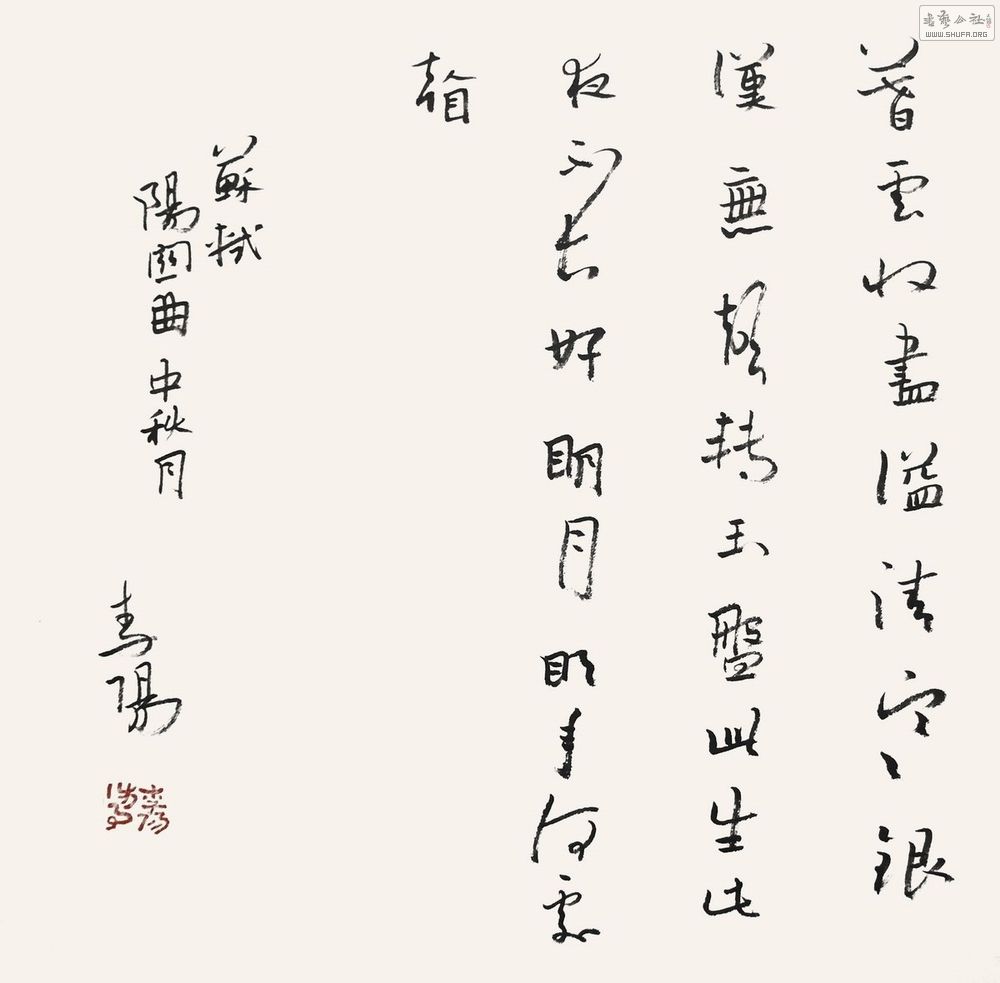 暮雲收盡溢清寒銀
漢無聲轉玉盤此生此
夜不長好明月明年何處
看
蘇軾
陽關曲中秋月
陽
書藝公社
WWW.SHUFA.ORG